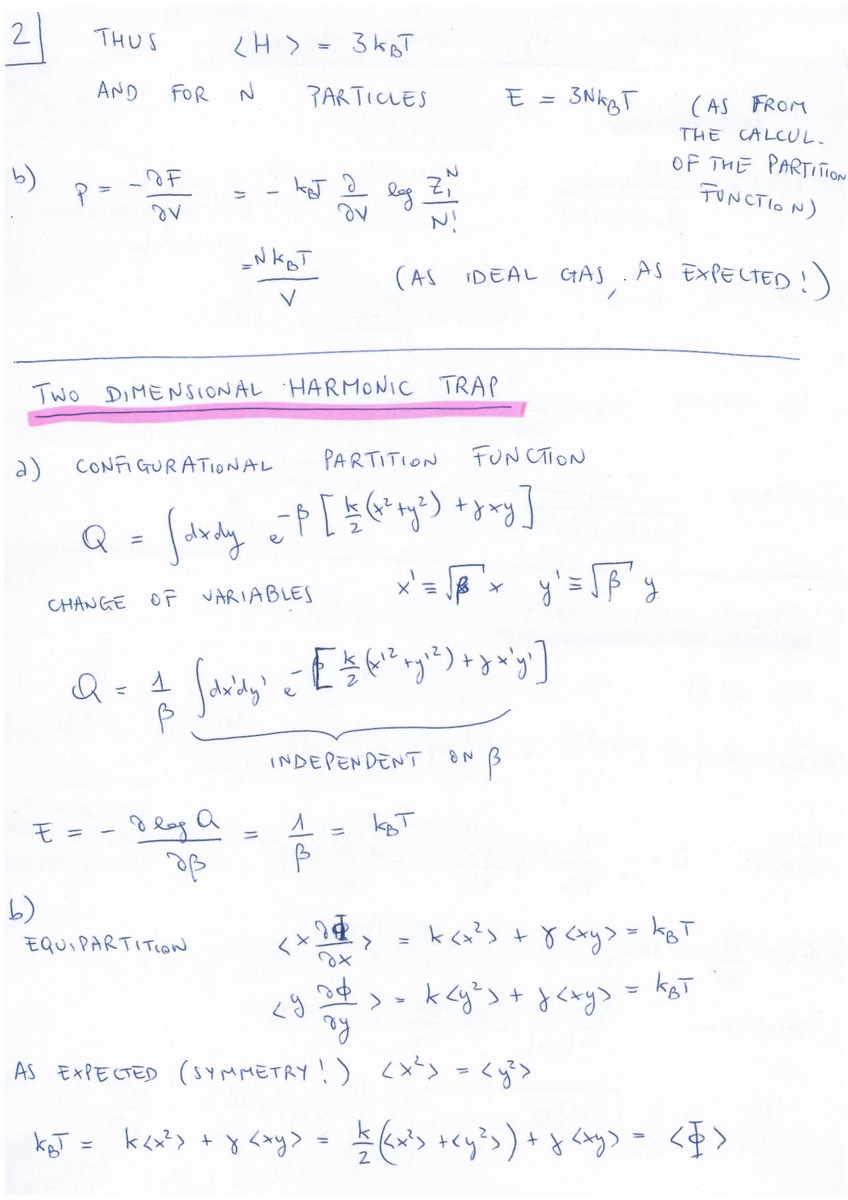 2
THUS <H> = 3k_BT
AND FOR N PARTICLES E = 3Nk_BT (AS FROM
THE CALCUL.
OF THE PARTITION
FUNCTION)
b) P = -∂F/∂V = - k_BT ∂/∂V log Z_1^N/N!
= Nk_BT/V (AS IDEAL GAS, AS EXPECTED!)
TWO DIMENSIONAL HARMONIC TRAP
a) CONFIGURATIONAL PARTITION FUNCTION
Q = ∫dxdy e^{-β[k/2(x²+y²)+γxy]}
CHANGE OF VARIABLES x' ≡ √β x y' ≡ √β y
Q = 1/β ∫dx'dy' e^{-[k/2(x'²+y'²)+γx'y']}
INDEPENDENT ON β
E = - ∂log Q/∂β = 1/β = k_BT
b)
EQUIPARTITION <x ∂Φ/∂x> = k<x²> + γ<xy> = k_BT
<y ∂Φ/∂y> = k<y²> + γ<xy> = k_BT
AS EXPECTED (SYMMETRY!) <x²> = <y²>
k_BT = k<x²> + γ<xy> = k/2(<x²>+<y²>) + γ<xy> = <Φ>